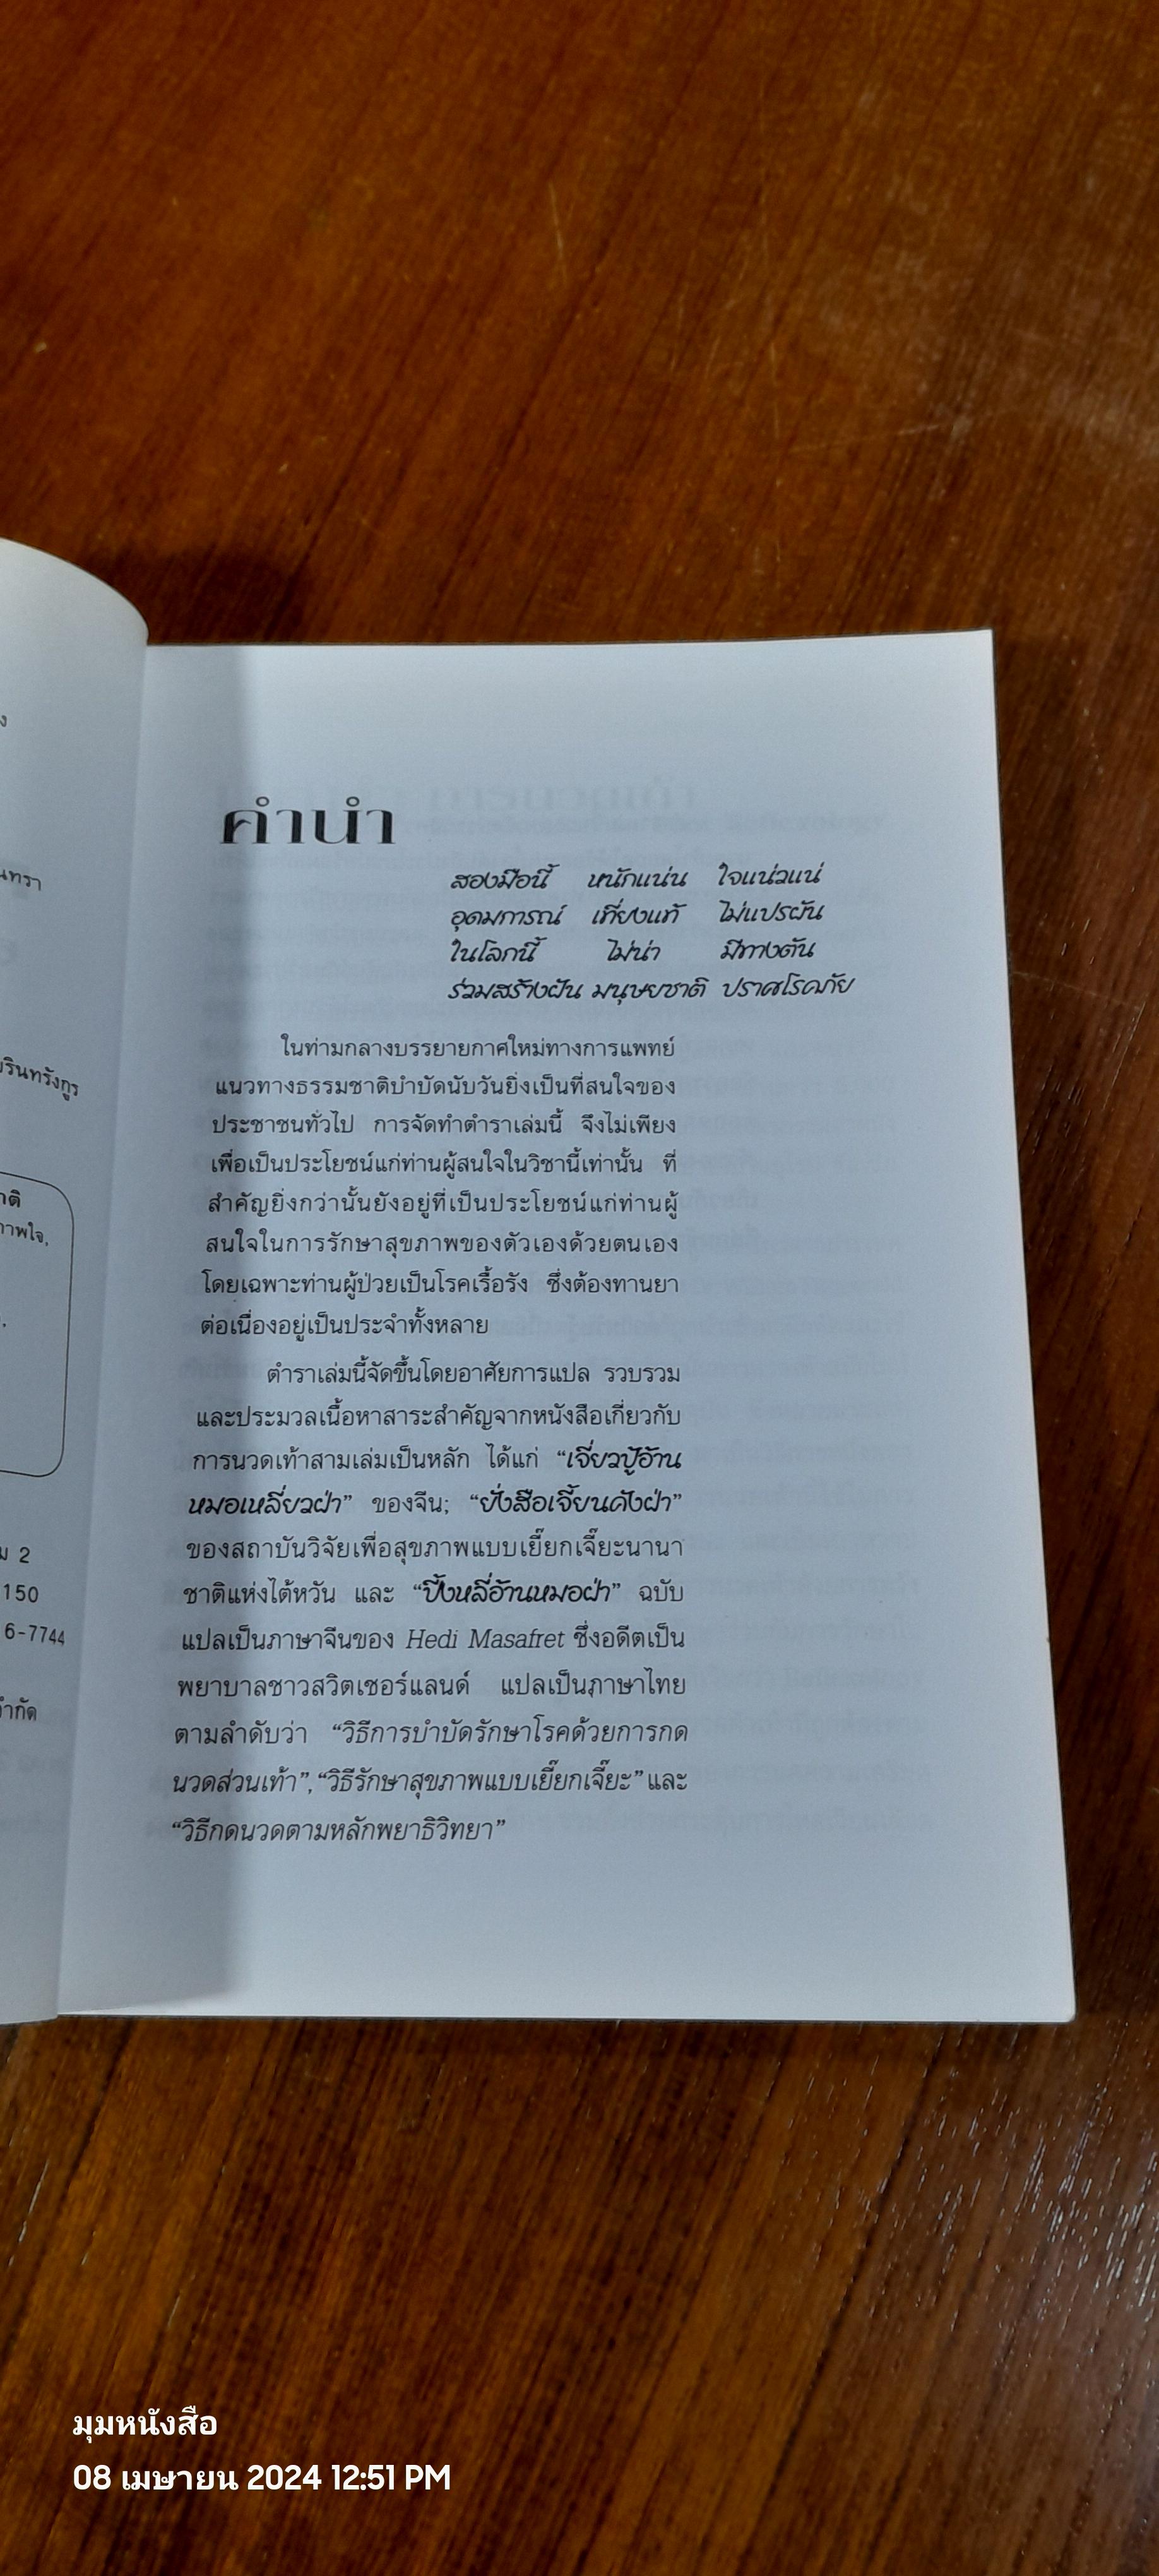 คำนำ
สองมือนี้ หนักแน่น ใจแน่วแน่
อุดมการณ์ เที่ยงแท้ ไม่แปรผัน
ในโลกนี้ ไม่น่า มีทางตัน
ร่วมสร้างฝัน มนุษยชาติ ปราศโรคภัย
ในท่ามกลางบรรยายกาศใหม่ทางการแพทย์
แนวทางธรรมชาติบำบัดนับวันยิ่งเป็นที่สนใจของ
ประชาชนทั่วไป การจัดทำตำราเล่มนี้ จึงไม่เพียง
เพื่อเป็นประโยชน์แก่ท่านผู้สนใจในวิชานี้เท่านั้น ที่
สำคัญยิ่งกว่านั้นยังอยู่ที่เป็นประโยชน์แก่ท่านผู้
สนใจในการรักษาสุขภาพของตัวเองด้วยตนเอง
โดยเฉพาะท่านผู้ป่วยเป็นโรคเรื้อรัง ซึ่งต้องทานยา
ต่อเนื่องอยู่เป็นประจำทั้งหลาย
ตำราเล่มนี้จัดขึ้นโดยอาศัยการแปล รวบรวม
และประมวลเนื้อหาสาระสำคัญจากหนังสือเกี่ยวกับ
การนวดเท้าสามเล่มเป็นหลัก ได้แก่ “เจี่ยวปู้อ้าน
หมอเหลี่ยวฝ่า” ของจีน; “ยั่งสือเจี้ยนคังฝ่า”
ของสถาบันวิจัยเพื่อสุขภาพแบบเยี๊ยกเจี๊ยะนานา
ชาติแห่งไต้หวัน และ “ปิ้งหลี่อ้านหมอฝ่า” ฉบับ
แปลเป็นภาษาจีนของ Hedi Masafret ซึ่งอดีตเป็น
พยาบาลชาวสวิตเซอร์แลนด์ แปลเป็นภาษาไทย
ตามลำดับว่า “วิธีการบำบัดรักษาโรคด้วยการกด
นวดส่วนเท้า”,“วิธีรักษาสุขภาพแบบเยี๊ยกเจี๊ยะ”และ
“วิธีกดนวดตามหลักพยาธิวิทยา”
ม 2
150
6-7744
จำกัด
มุมหนังสือ
08 เมษายน 2024 12:51 PM